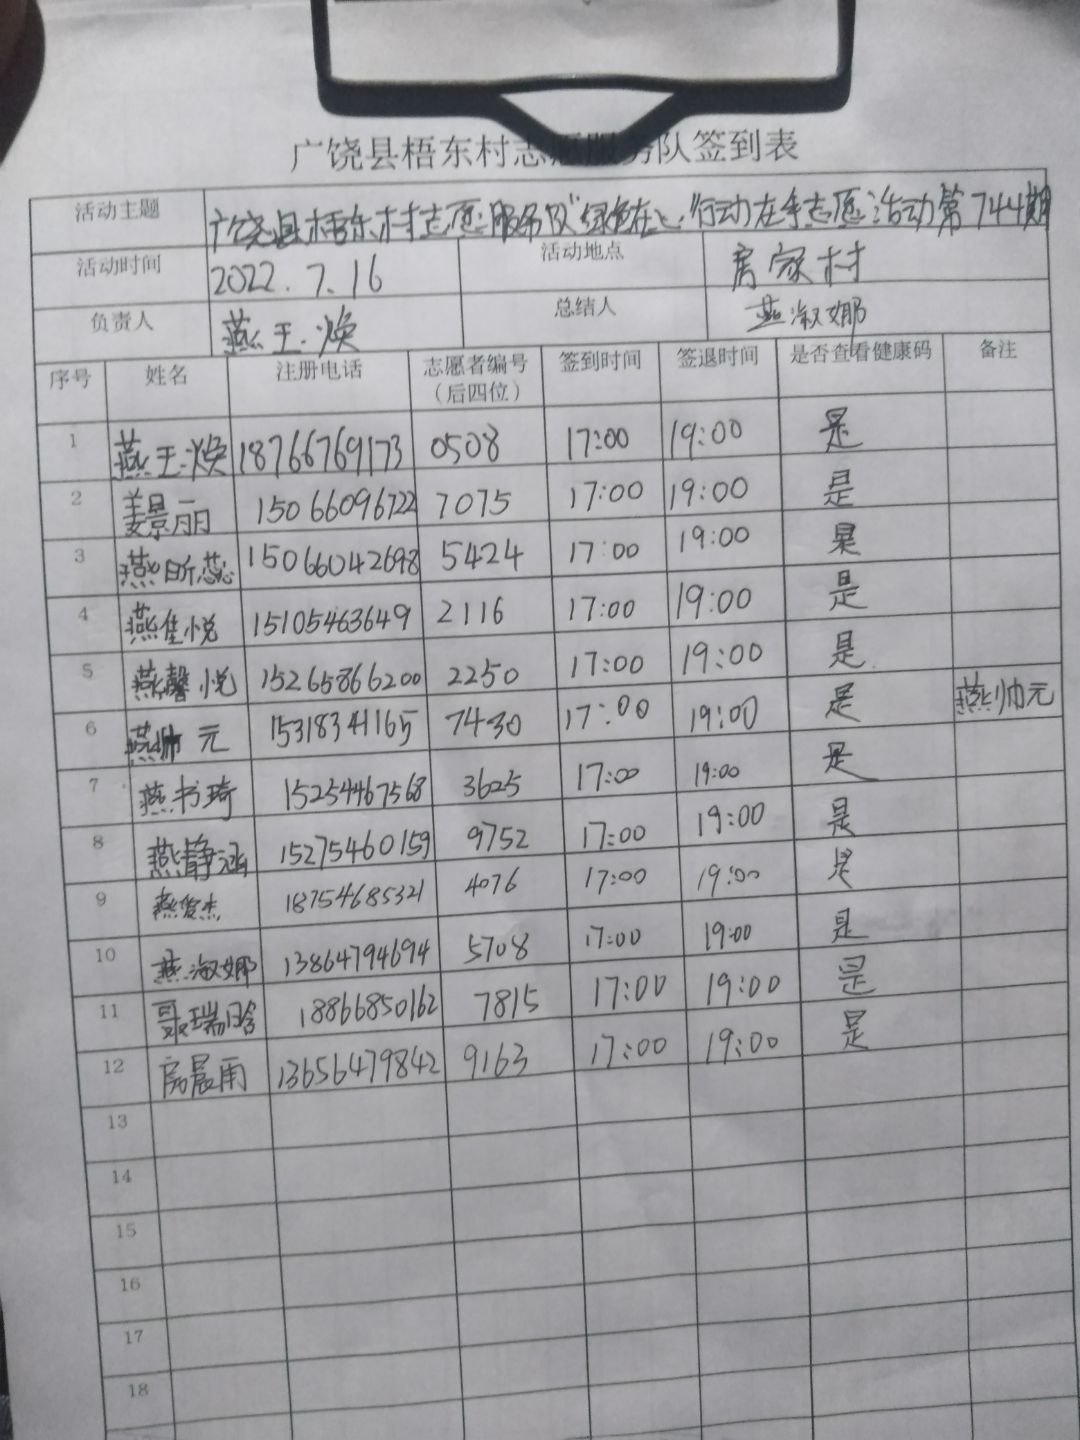 广饶县梧东村志愿服务队签到表
活动主题 广饶县梧东村志愿服务队"绿色在心 行动在手志愿活动第744期
活动时间 2022.7.16 活动地点 房家村
负责人 燕玉焕 总结人 燕淑娜
序号 姓名 注册电话 志愿者编号（后四位） 签到时间 签退时间 是否查看健康码 备注
1 燕玉焕 18766769173 0508 17:00 19:00 是
2 姜景丽 15066096722 7075 17:00 19:00 是
3 燕昕蕊 15066042698 5424 17:00 19:00 是
4 燕佳悦 15105463649 2116 17:00 19:00 是
5 燕馨悦 15265866200 2250 17:00 19:00 是
6 燕帅元 15318341165 7430 17:00 19:00 是 燕帅元
7 燕书琦 15254467568 3625 17:00 19:00 是
8 燕静涵 15275460159 9752 17:00 19:00 是
9 燕俊杰 18754685321 4076 17:00 19:00 是
10 燕淑娜 13864794694 5708 17:00 19:00 是
11 聂瑞晗 18866850162 7815 17:00 19:00 是
12 房晨雨 13656479842 9163 17:00 19:00 是
13
14
15
16
17
18